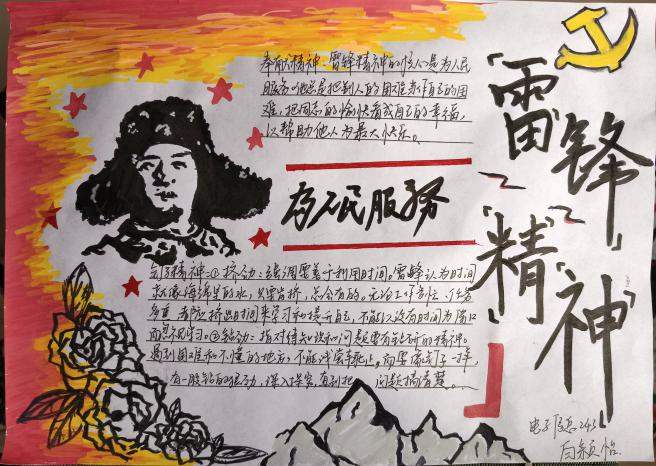 雷锋
精神
奉献精神：雷锋精神的核心是为人民
服务。他总是把别人的困难当作自己的困
难，把同志的愉快看成自己的幸福，
以帮助他人为最大快乐。
为人民服务
钉子精神：①挤劲：强调要善于利用时间。雷锋认为时间
就像海绵里的水，只要肯挤，总会有的。无论工作多忙、任务
多重，都应挤出时间来学习和提升自己，不能以没有时间为借口
而忽视学习。②钻劲：指对待知识和问题要有钻研的精神。
遇到困难和不懂的地方，不能浅尝辄止，而要像钉子一样，
有一股钻的狠劲，深入探究，直到把问题搞清楚。
电子信息243
白颖怡